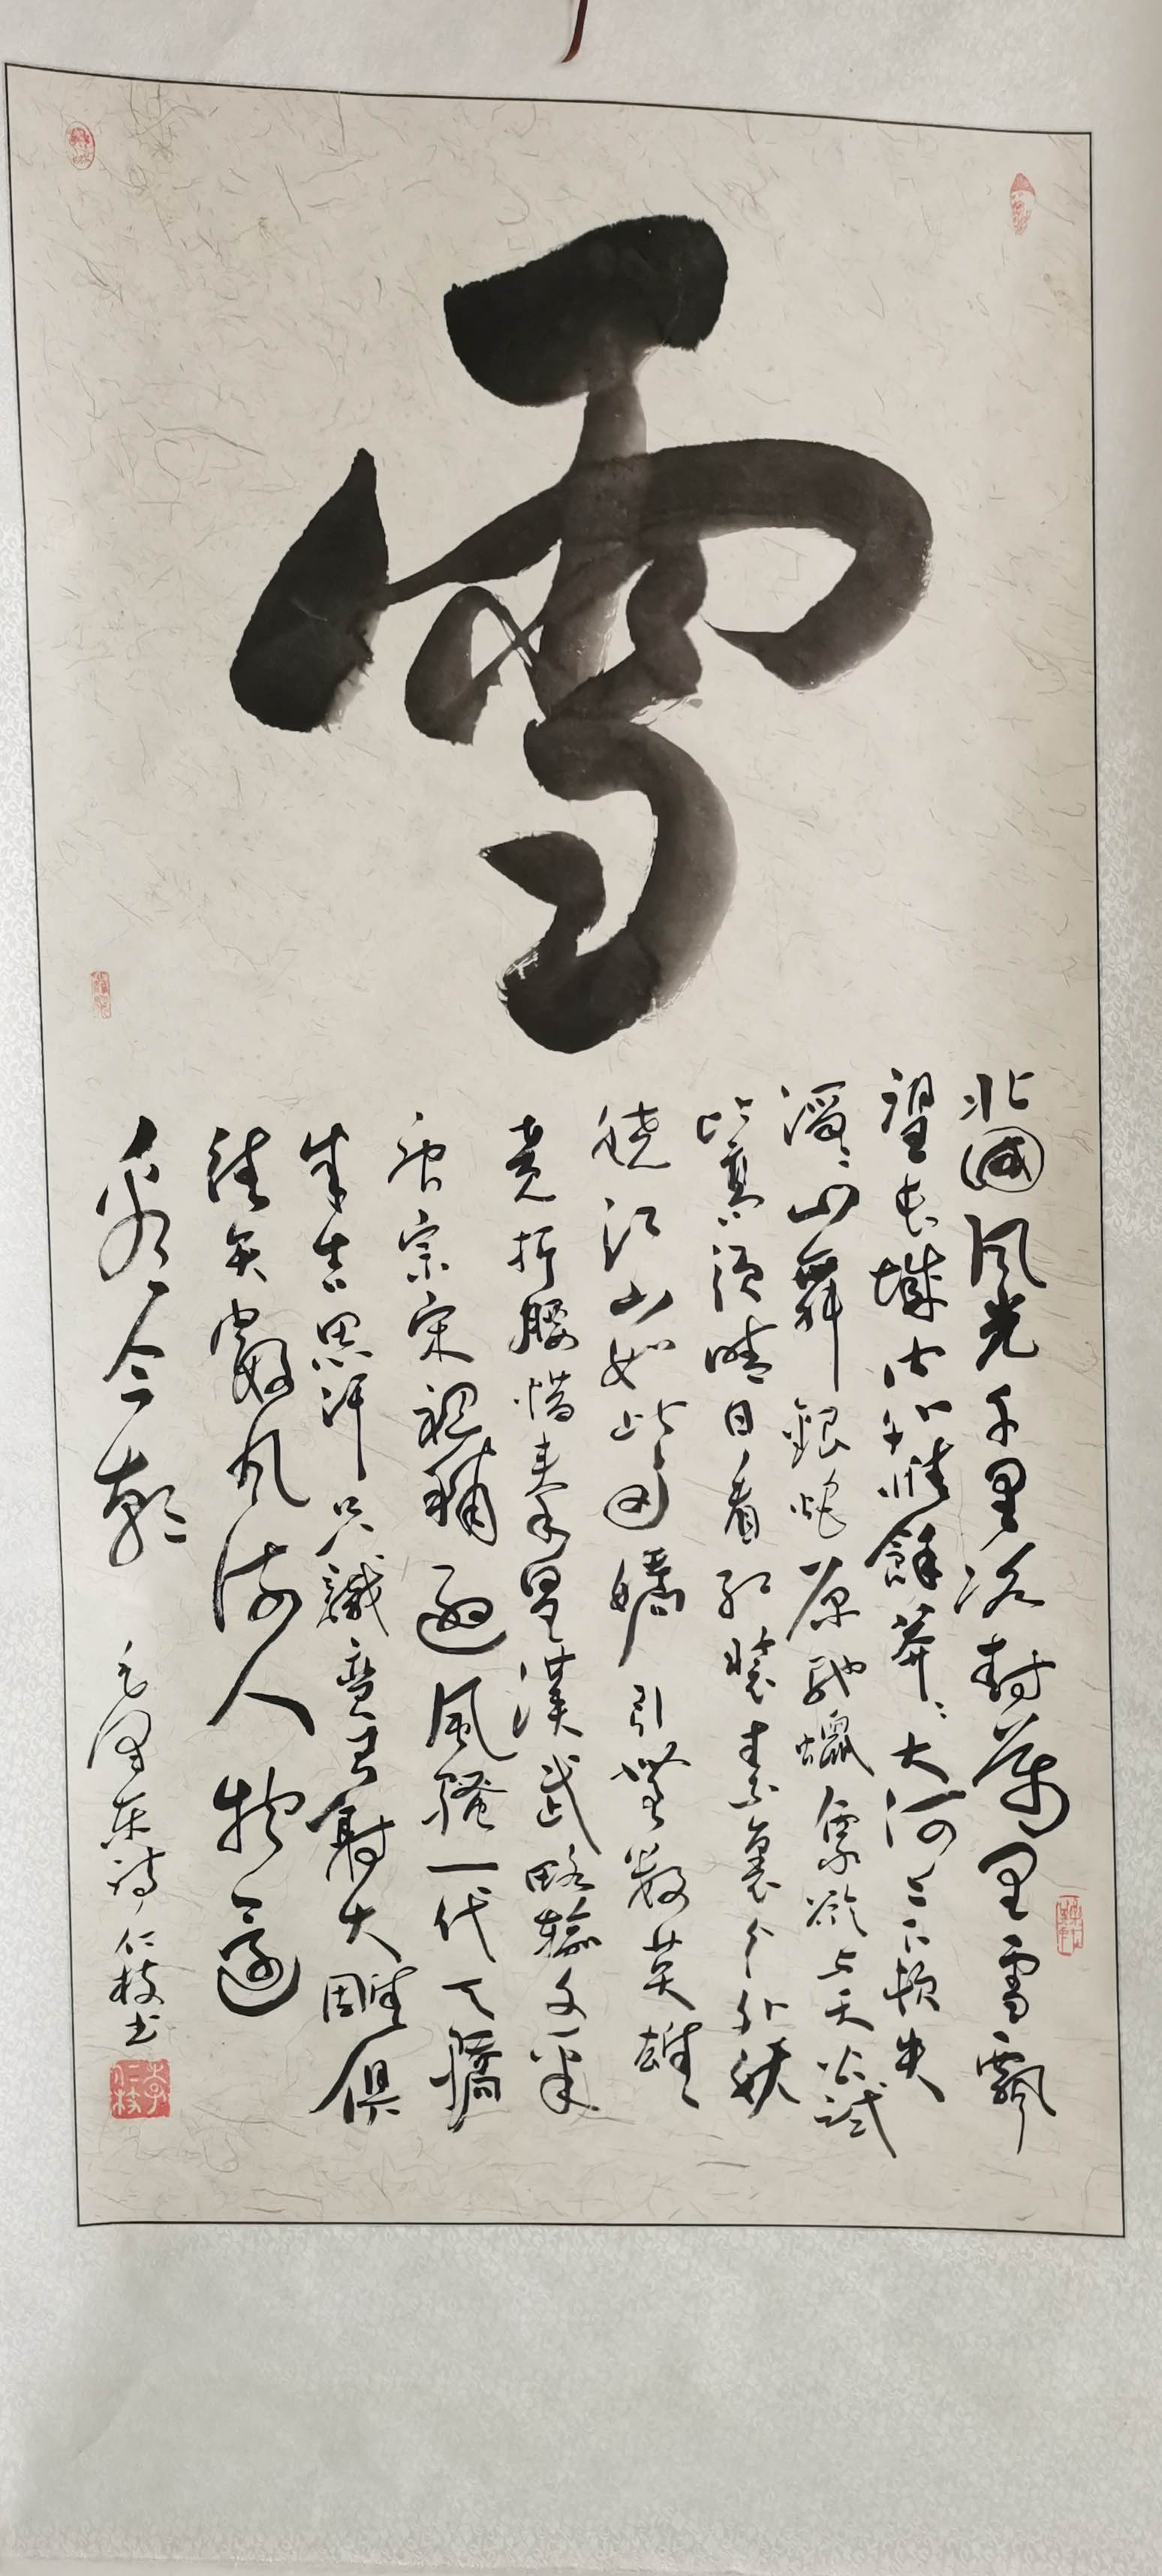 雪
北國風光千里冰封萬里雪飄
望長城内外惟餘莽〻大河上下頓失
滔〻山舞銀蛇原馳蠟象欲与天公試
比高須晴日看紅裝素裹分外妖
嬈江山如此多嬌引無數英雄
竞折腰惜秦皇漢武略輸文采
唐宗宋祖稍遜風騷一代天驕
成吉思汗只識彎弓射大雕俱
往矣數風流人物還
看今朝 毛澤東詩 仁枝书
李仁枝